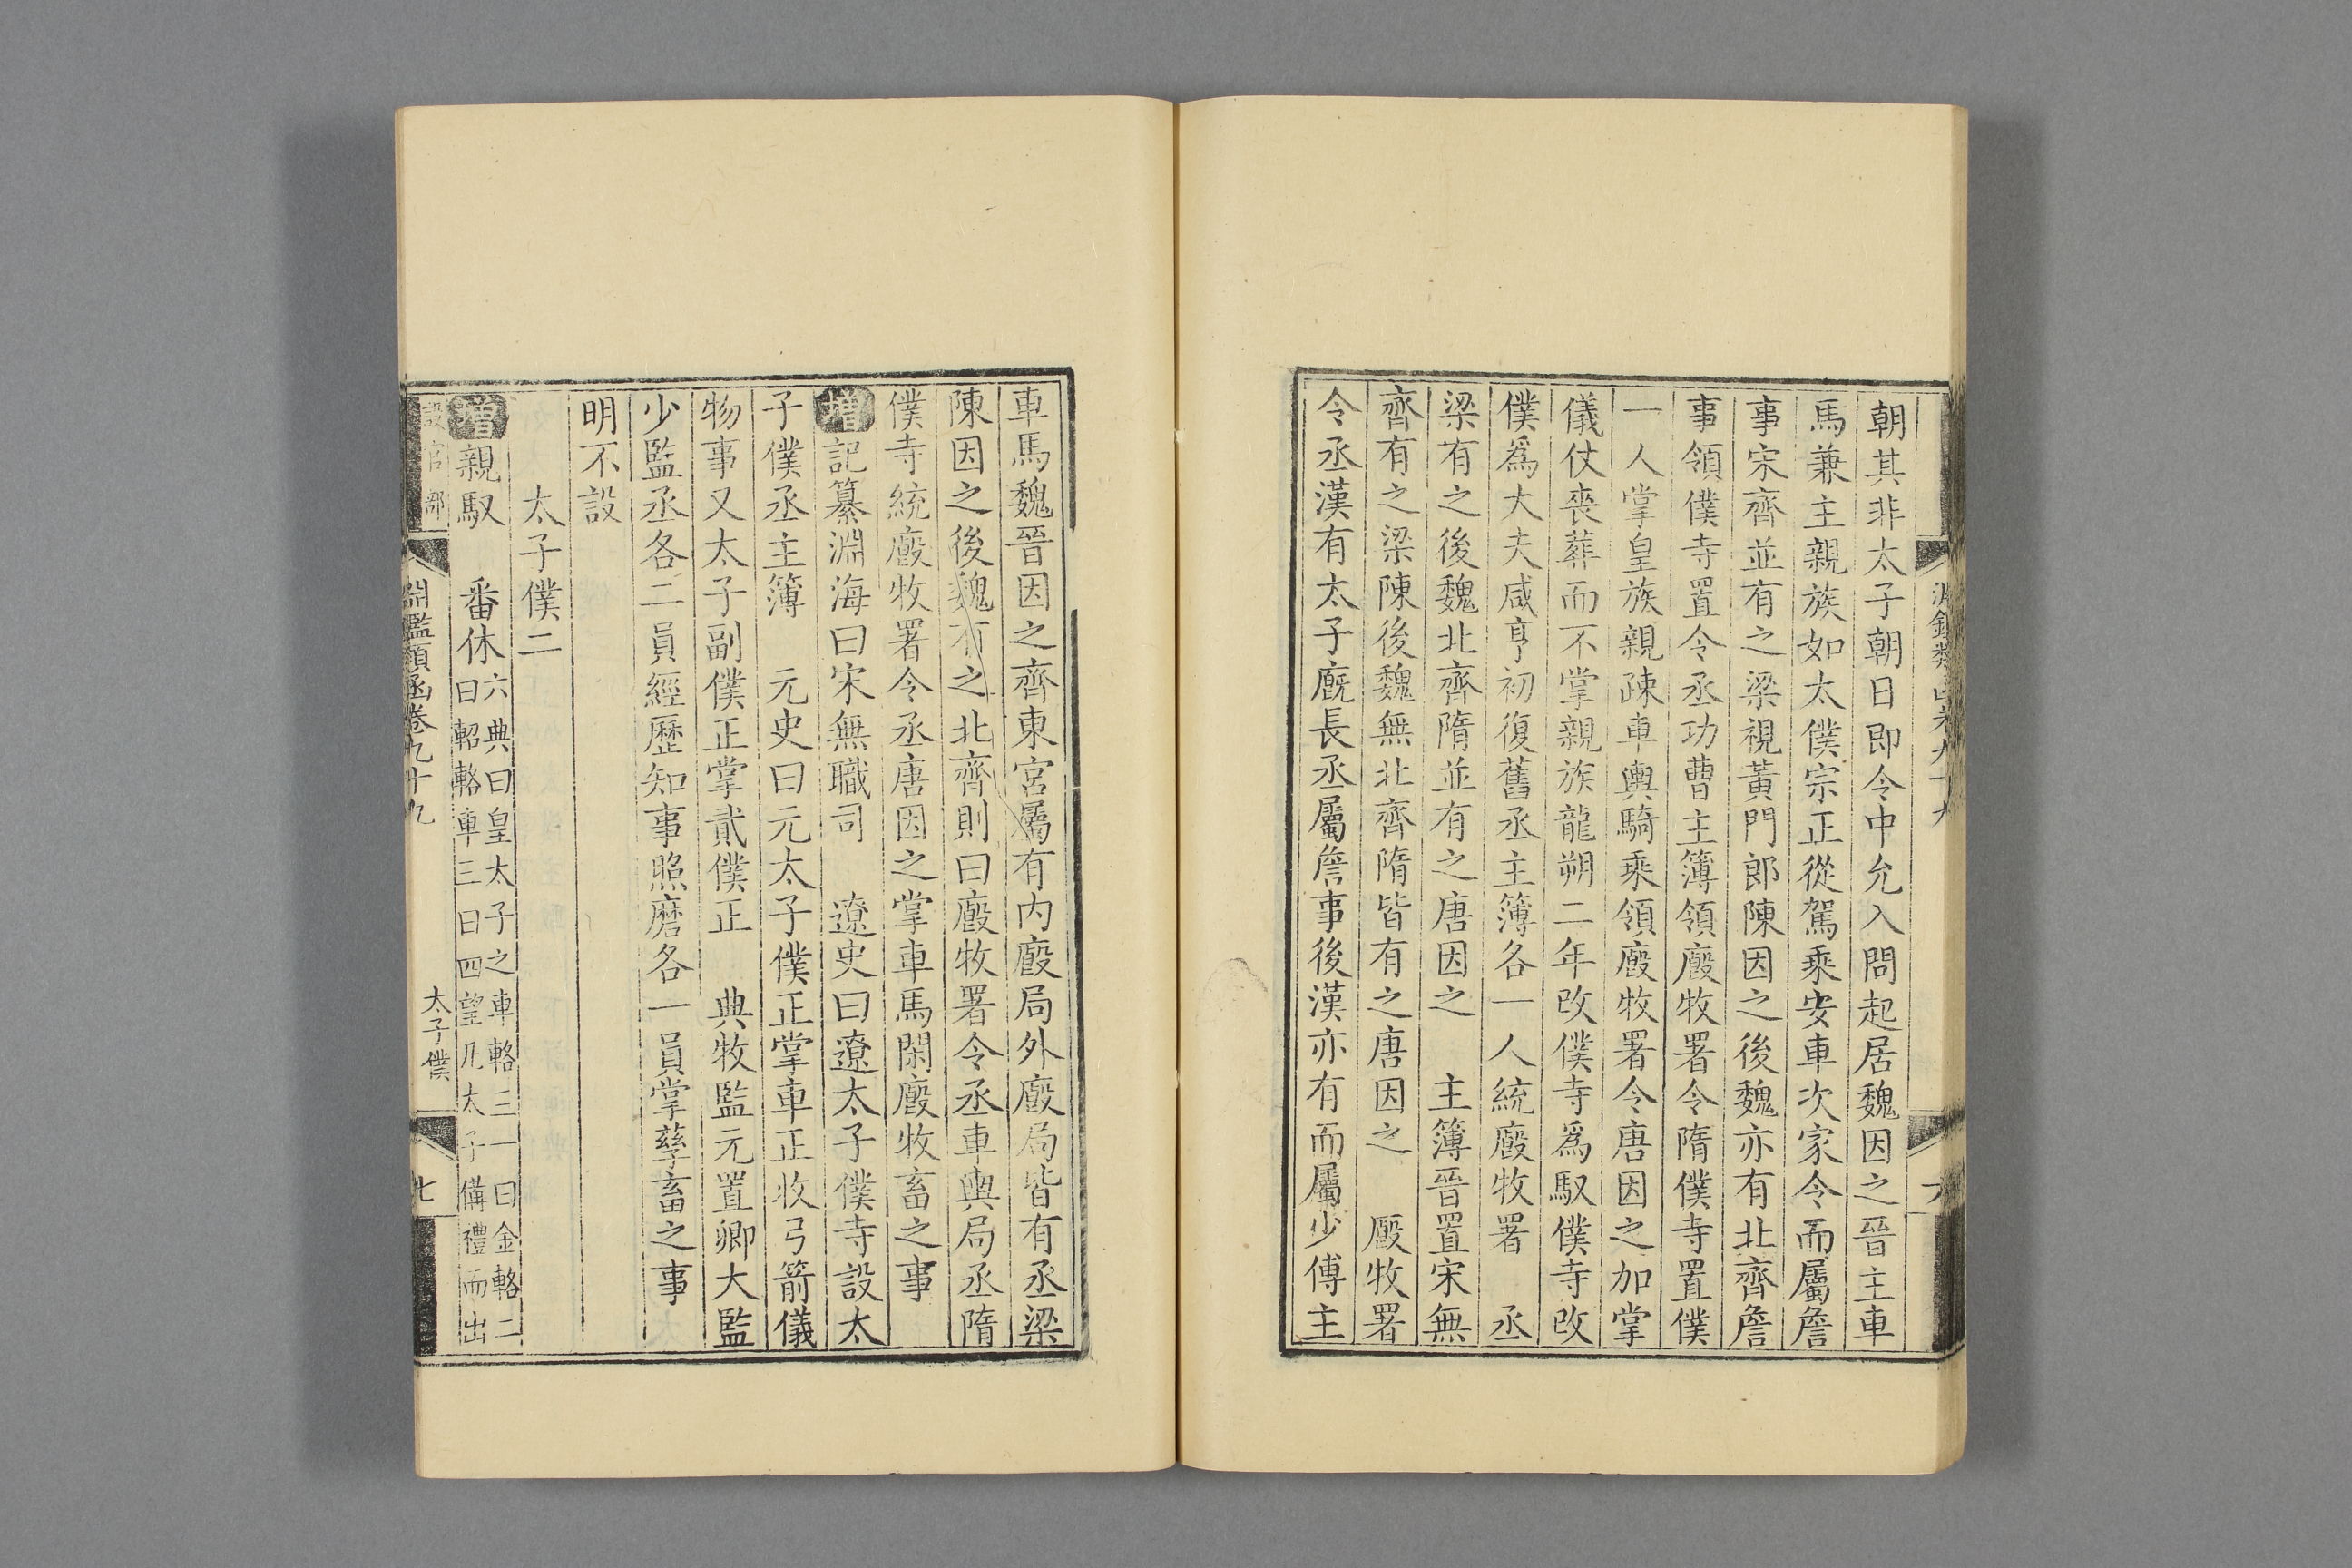 朝其非太子朝日即令中允入問起居魏因之晉主車
馬兼主親族如太僕宗正從駕乘安車次家令而屬詹
事宋齊並有之梁視黃門郎陳因之後魏亦有北齊詹
事領僕寺置令丞功曹主簿領廄牧署令隋僕寺置僕
一人掌皇族親疎車輿騎乘領廄牧署令唐因之加掌
儀仗喪葬而不掌親族龍朔二年改僕寺爲馭僕寺改
僕爲大夫咸亨初復舊丞主簿各一人統廄牧署　丞
梁有之後魏北齊隋並有之唐因之　主簿晉置宋無
齊有之梁陳後魏無北齊隋皆有之唐因之　廄牧署
令丞漢有太子廐長丞屬詹事後漢亦有而屬少傅主
車馬魏晉因之齊東宮屬有内廄局外廄局皆有丞梁
陳因之後魏有之北齊則曰廄牧署令丞車輿局丞隋
僕寺統廄牧署令丞唐因之掌車馬閑廄牧畜之事
增記纂淵海曰宋無職司　遼史曰遼太子僕寺設太
子僕丞主簿　元史曰元太子僕正掌車正收弓箭儀
物事又太子副僕正掌貳僕正　典牧監元置卿大監
少監丞各二員經歷知事照磨各一員掌孳畜之事
明不設
太子僕二
增親馭　番休六典曰皇太子之車輅三一曰金輅二
曰軺輅車三曰四望凡太子備禮而出
設官部　淵鑑類函卷九十九　太子僕　七